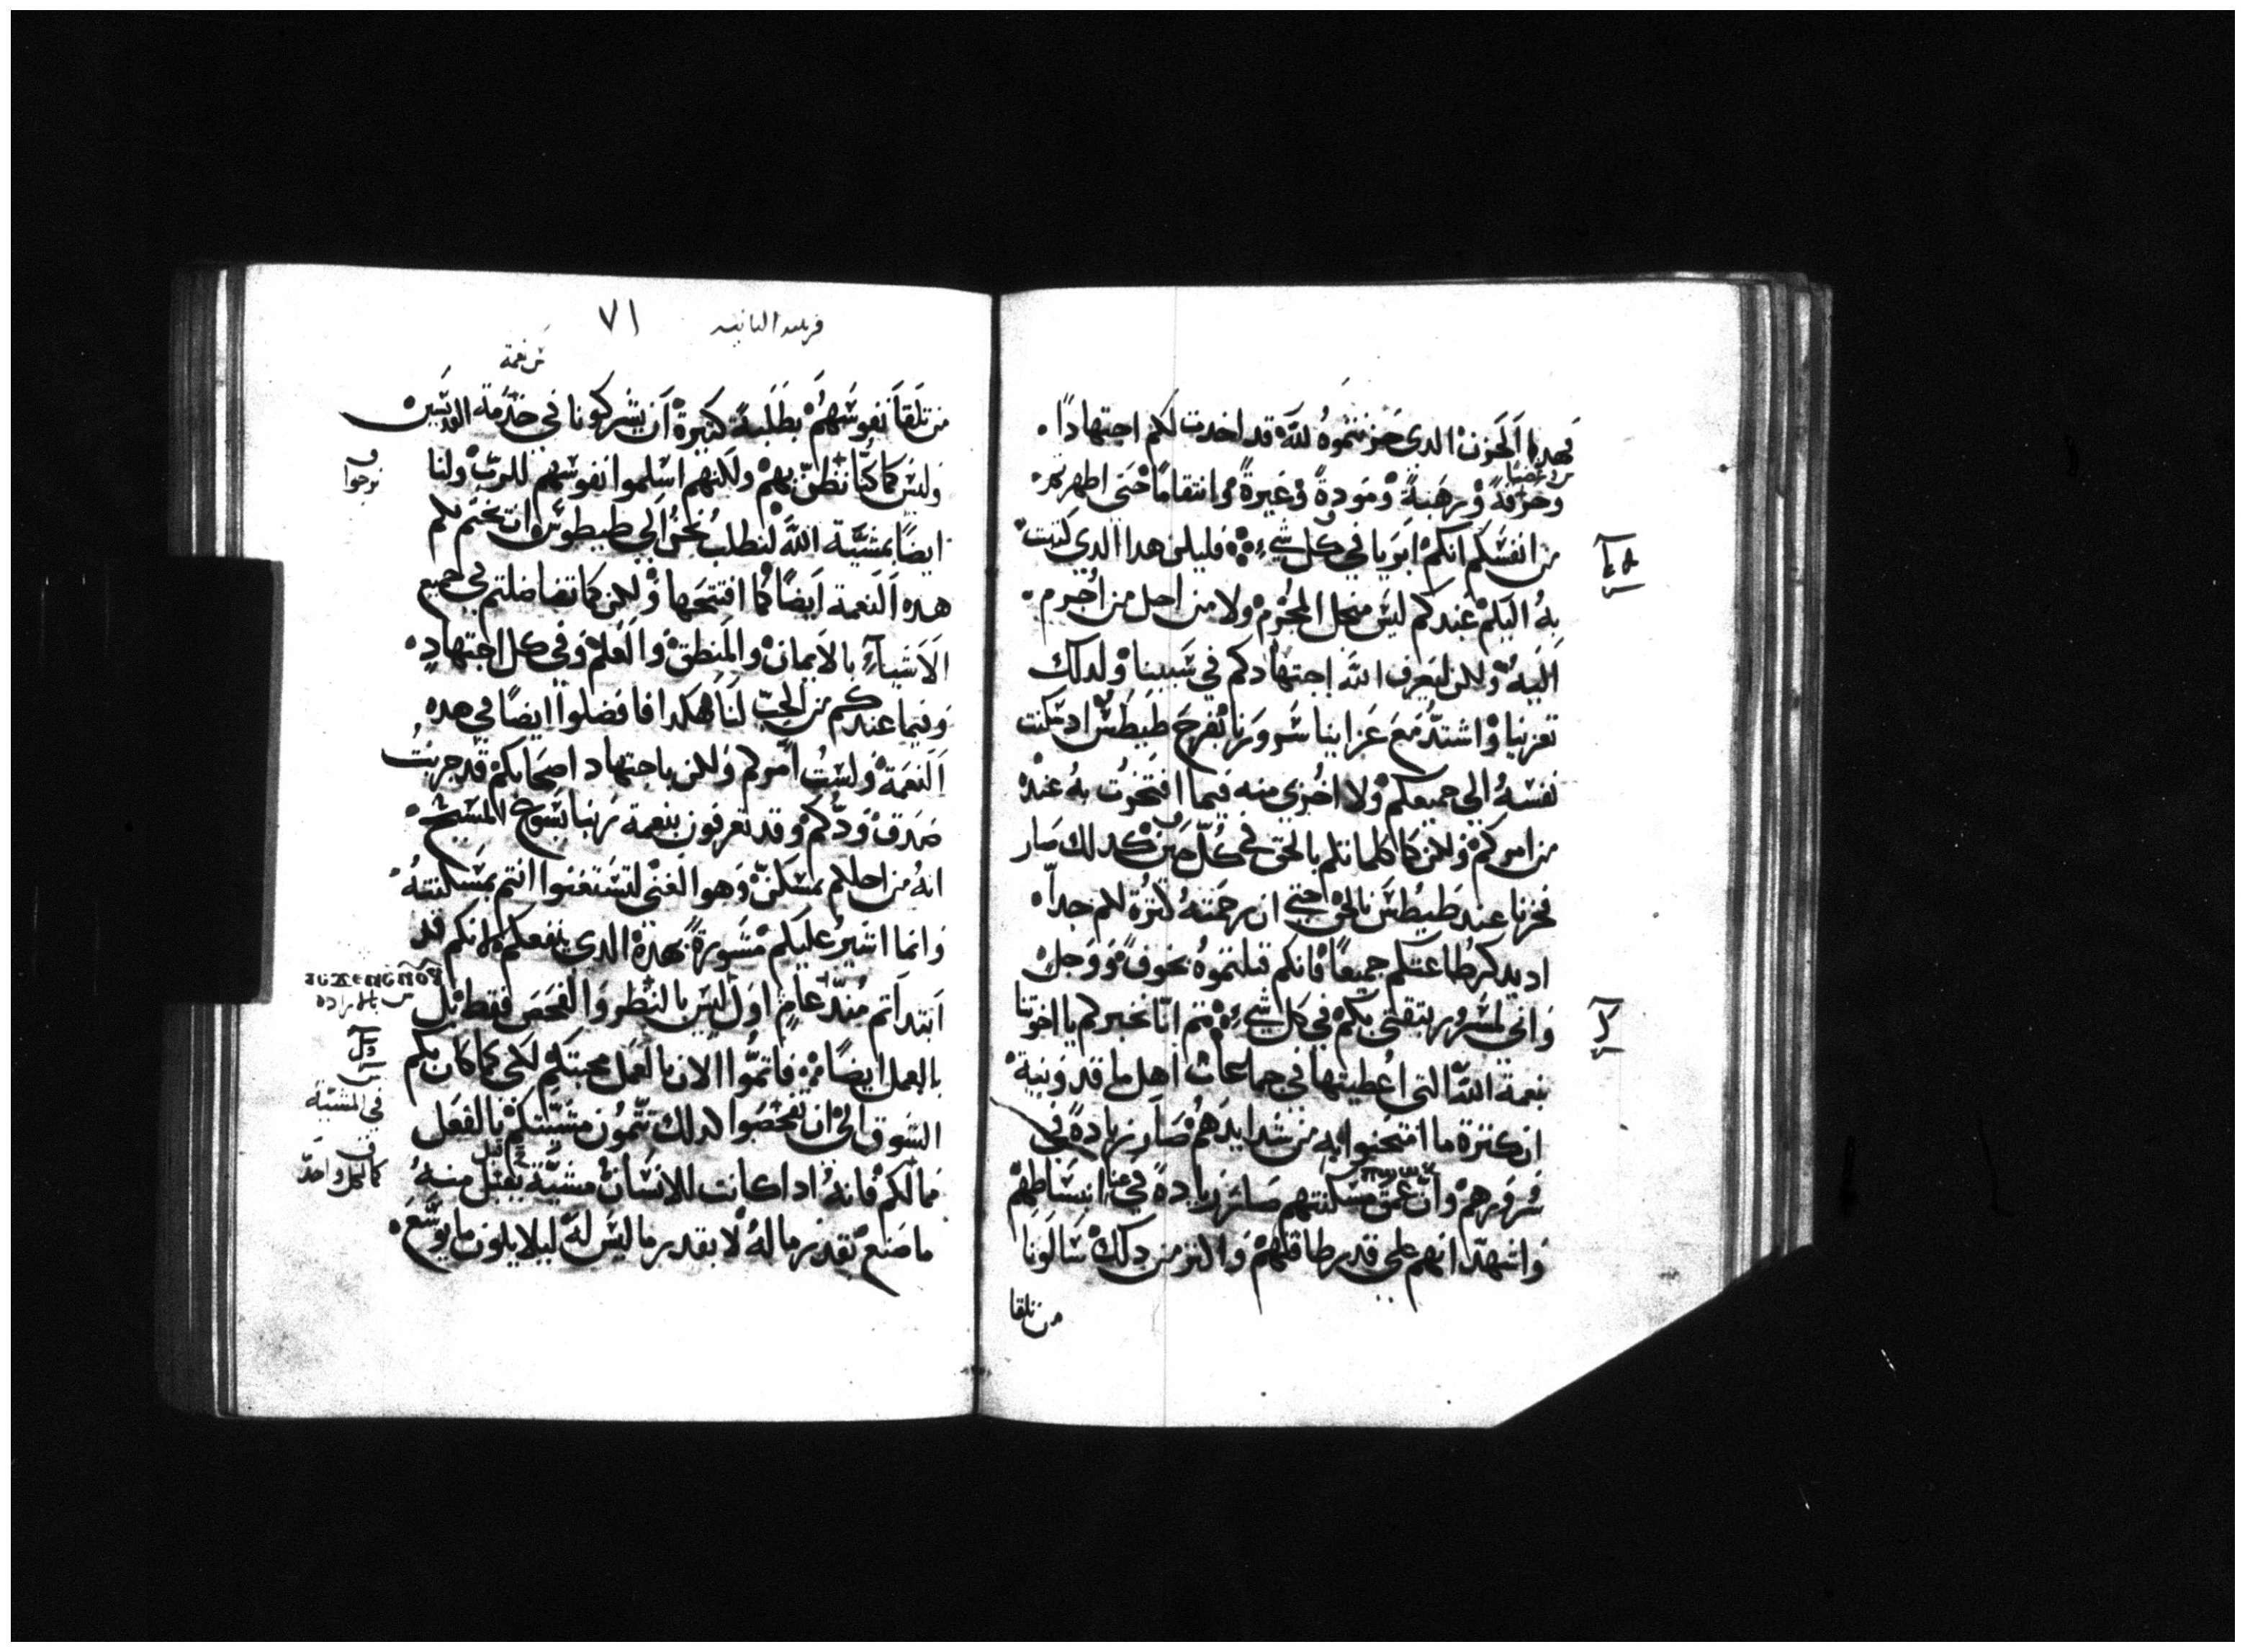 فهدا الحزن الدى حزنتموه لله قد اخدت لكم اجتهادًا
وحرقةً ورهبةً ومودةً وغيرةً وانتقامًا حتى اظهرتم
من انفسكم انكم ابريا في كل شي فليكن هدا الدى كتبت
به اليكم عندكم ليس من اجل المجرم ولا من اجل من اجرم
اليه ولكن ليعرف الله اجتهادكم في سببنا ولدلك
تعزينا واشتد مع عزاينا سرورنا بفرح طيطس اد سكنت
نفسه الي جميعكم ولا اخزى منه فيما افتخرت به عنده
من اموركم ولكن كما كلمناكم بالحق في كل حين كدلك صار
فخرنا عند طيطس بالحق حتي ان رحمته كثرة لكم جداً
اد يدكر طاعتكم جميعًا فانكم قبلتموه بخوف ووجل
واني لمسرور بتقتي بكم في كل شي ثم انا نخبركم يا اخوتنا
بنعمة الله التى اعطيتها في جماعات اهل ماقدونية
ان كثرة ما امتحنوا به من شدايدهم صار زيادةً في
سرورهم وان عمق مسكنتهم صار زيادةً في انبساطهم
واشهد انهم على قدر طاقتهم واكثر من دلك سالونا
من تلقا
٧١
من نعمة
من تلقا نفوسهم بطلبة كثيرة ان يشركونا في خدمة القديسين
وليس كما كنا نظن بهم ولكنهم اسلموا نفوسهم للرب ولنا
نرجوا
ايضًا بمشيّة الله لنطلب نحن الي طيطوس ان يختم لكم
هده النعمة ايضًا كما افتتحها ولكن كما تفاضلتم في جميع
الاشياء بالايمان والمنطق والعلم وفي كل اجتهاد
وفيما عندكم من الحب لنا هكدا فافضلوا ايضًا في هده
النعمة ولست امركم ولكن باجتهاد اصحابكم قد جربت
صدق ودّكم وقد تعرفون بنعمة ربنا يسوع المسيح
انه من اجلكم تمسكن وهو الغنى لتستغنوا انتم بمسكنته
وانما اشير عليكم مشورةً بهده الدي ينفعكم لانكم قد
ابتداتم مند عام اول ليس بالنظر والفحص فقط بل
بالعمل ايضًا فاتموا الان بالعمل محبتكم لكي كما كان بكم
في المشيّة
الشوق الى ان تفحصوا كدلك تتمون مشيّتكم بالفعل
كالكل واحد
مما لكم فانه ادا كانت للانسان مشيّة يقبل منه
ما صنع بقدر ما له لا بقدر ما ليس له ليلا يكون ما يوسّع